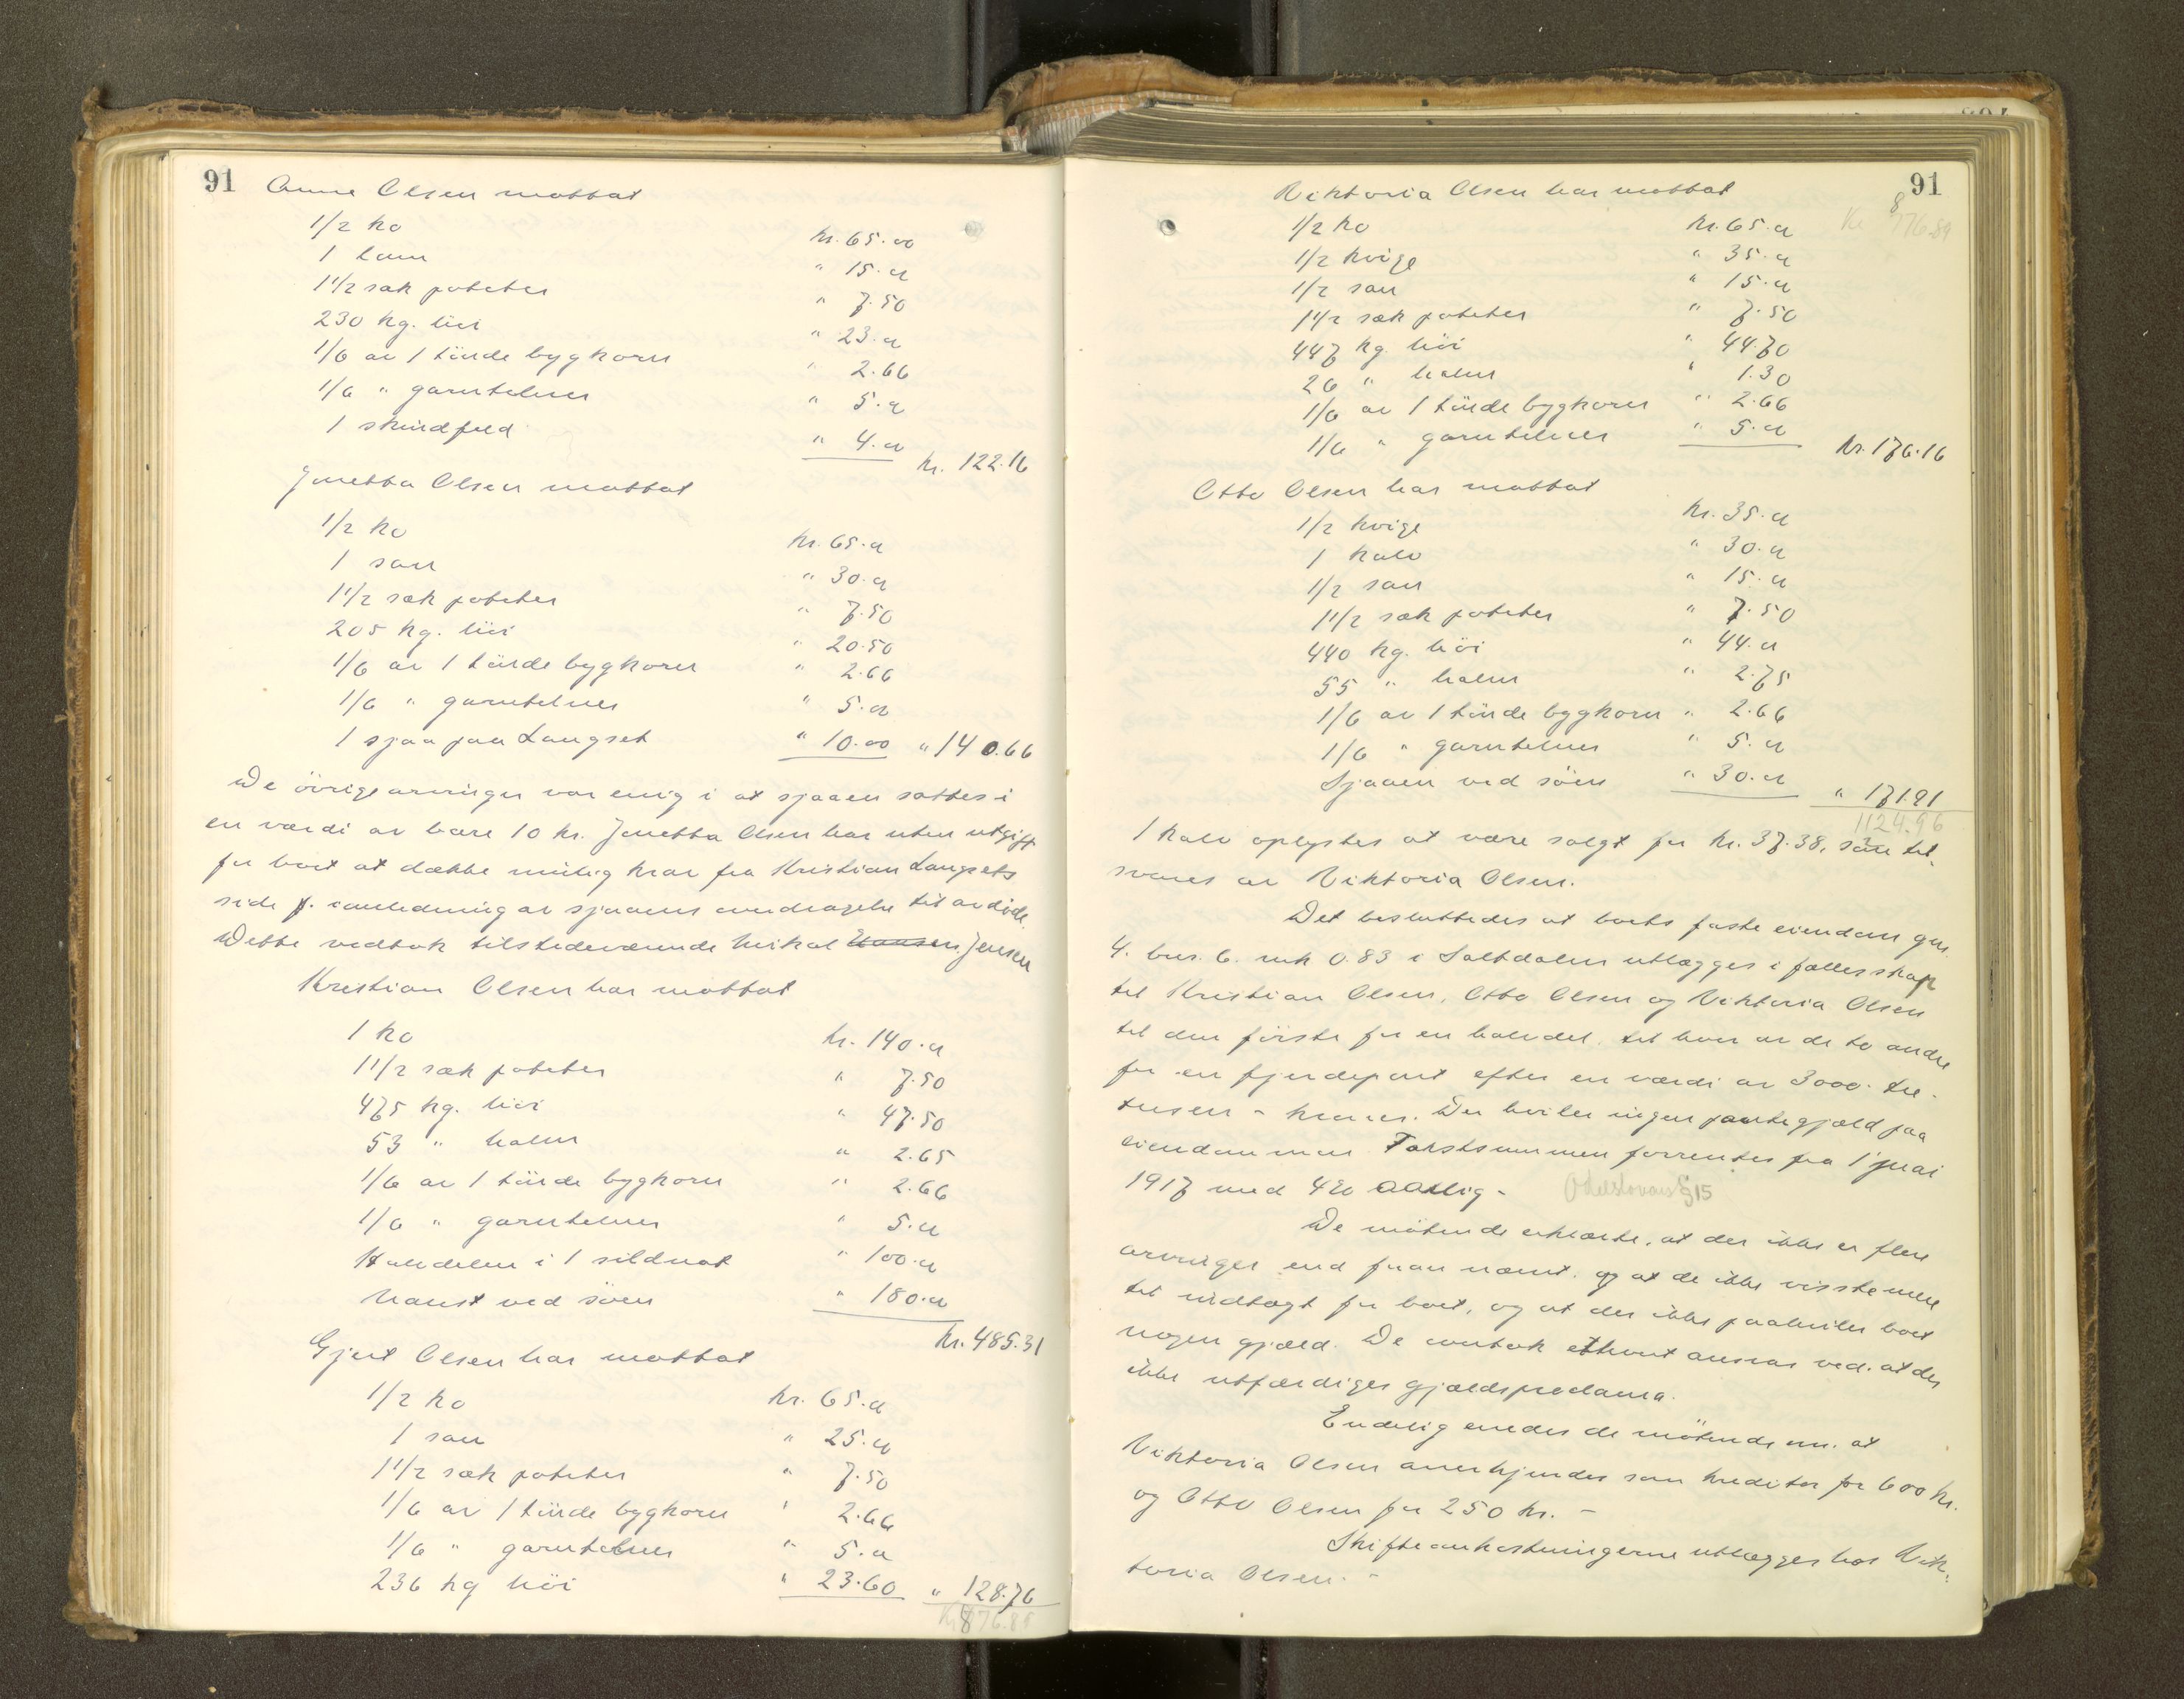 91
Anne Olsen mottat
1/2 ko kr. 65.00
1 lam " 15.00
1 1/2 sæk poteter " 7.50
230 kg. höi " 23.00
1/6 av 1 tönde bygkorn " 2.66
1/6 " garntelner " 5.00
1 skindfeld " 4.00 kr. 122.16
Jenetta Olsen mottat
1/2 ko kr. 65.00
1 sau " 30.00
1 1/2 sæk poteter " 7.50
205 kg. höi " 20.50
1/6 av 1 tönde bygkorn " 2.66
1/6 " garntelner " 5.00
1 sjaa paa Langset " 10.00 " 140.66
De övrige arvinger var enig i at sjaaen sattes i
en værdi av bare 10 kr. Jenetta Olsen har uten utgift
for boet at dække mulig krav fra Kristian Langsets
side f. anledning av sjaaens overdragelse til avdöde.
Dette vedtok tilstedeværende Mikal Hansen Jensen
Kristian Olsen har mottat
1 ko kr. 140.00
1 1/2 sæk poteter " 7.50
475 kg. höi " 47.50
53 " halm " 2.65
1/6 av 1 tönde bygkorn " 2.66
1/6 " garntelner " 5.00
Halvdelen i 1 sildnot " 100.00
Naust ved söen " 180.00
kr. 485.31
Gjert Olsen har mottat
1/2 ko kr. 65.00
1 sau " 25.00
1 1/2 sæk poteter " 7.50
1/6 av 1 tönde bygkorn " 2.66
1/6 " garntelner " 5.00
236 kg höi " 23.60 " 128.76
Kr 876.89
91
Viktoria Olsen har mottat
Kr 876.89
1/2 ko kr. 65.00
1/2 kvige " 35.00
1/2 sau " 15.00
1 1/2 sæk poteter " 7.50
447 kg. höi " 44.70
26 " halm " 1.30
1/6 av 1 tönde bygkorn " 2.66
1/6 " garntelner " 5.00 kr. 176.16
Otto Olsen har mottat
1/2 kvige kr. 35.00
1 kalv " 30.00
1/2 sau " 15.00
1 1/2 sæk poteter " 7.50
440 kg. höi " 44.00
55 " halm " 2.75
1/6 av 1 tönde bygkorn " 2.66
1/6 " garntelner " 5.00
Sjaaen ved söen " 30.00 " 171.91
1124.96
1 kalv oplystes at være solgt for kr. 37.38, som til-
svares av Viktoria Olsen.
Det besluttedes at boets faste eiendom gnr.
4. bnr. 6. mk 0.83 i Saltdalen utlægges i fællesskap
til Kristian Olsen, Otto Olsen og Viktoria Olsen
til den förste for en halvdel, til hver av de to andre
for en fjerdepart efter en værdi av 3000 - tre -
tusen - kroner. Der hviler ingen pantegjæld paa
eiendommen Takstsummen forrentes fra 1 mai
1917 med 4% aarlig - Odelsloven § 15
De mötende erklærte, at der ikke er flere
arvinger end foran nævnt, og at de ikke visste mere
til indtægt for boet, og at der ikke paahviler boet
nogen gjæld. De overtok ethvert ansvar ved, at der
ikke utfærdiges gjældsproclama.
Endelig enedes de mötende om, at
Viktoria Olsen anerkjendes som kreditor for 600 kr.
og Otto Olsen for 250 kr. -
Skifteomkostningerne utlægges hos Vik-
toria Olsen. -